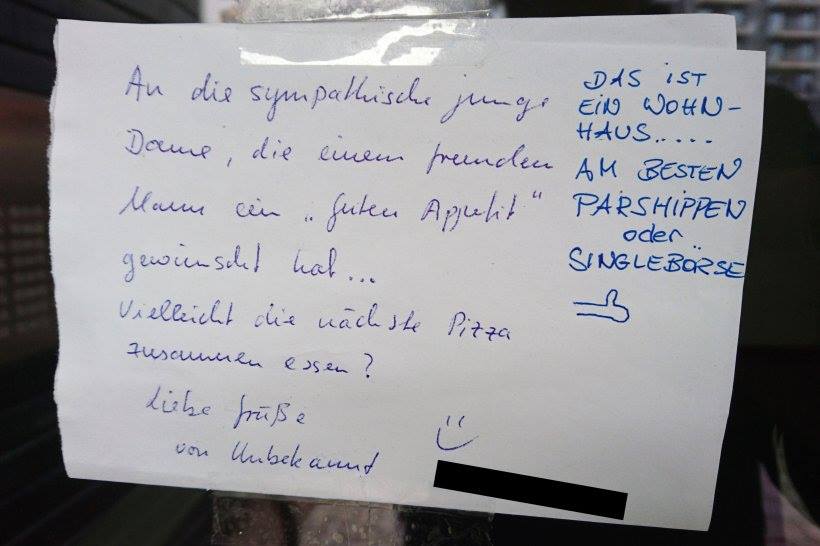 An die sympathische junge
Dame, die einem fremden
Mann ein „Guten Appetit“
gewünscht hat...
Vielleicht die nächste Pizza
zusammen essen?
Liebe Grüße
von Unbekannt
DAS IST
EIN WOHN-
HAUS.....
AM BESTEN
PARSHIPPEN
oder
SINGLEBÖRSE